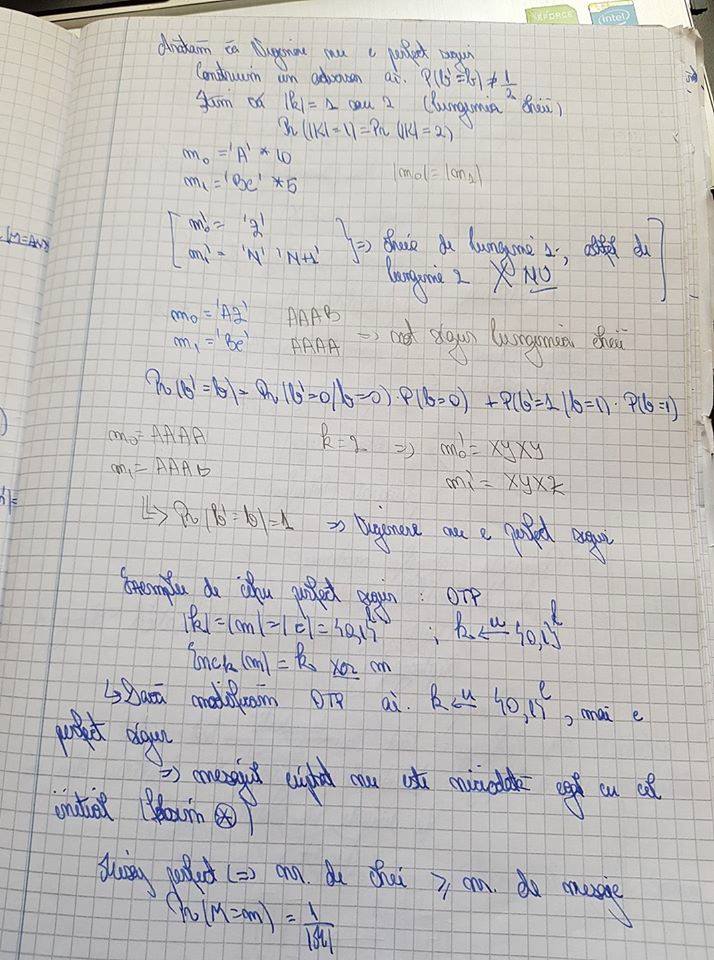 GEFORCE
intel
Arătăm că Vigenere nu e perfect sigur
Construim un adversar aî. P(b'=b) ≠ 1/2
Știm că |k| = 1 sau 2 (lungimea cheii)
Pr(|K|=1) = Pr(|K|=2)
m₀ = 'A' * 10
m₁ = 'BC' * 5
|m₀| = |m₁|
[ m₀' = 'Z'
m₁' = 'N' 'N+1' } => cheie de lungime 1, altfel de
lungime 2 X NO ]
m₀ = 'AZ' AAAB
m₁ = 'BC' AAAA => not sigur lungimea cheii
Pr(b'=b) = Pr(b'=0|b=0)·P(b=0) + P(b'=1|b=1)·P(b=1)
m₀ = AAAA k=2 => m₀' = XYXY
m₁ = AAAB m₁' = XYXZ
↳> Pr(b'=b)=1 => Vigenere nu e perfect sigur
Exemplu de cifru perfect sigur : OTP
|k| = |m| = |c| = {0,1}^l ; k ←u {0,1}^l
Enck(m) = k xor m
↳ Dacă modificăm OTP aî. k ←u {0,1}^l, mai e
perfect sigur
=> mesajul criptat nu este niciodată egal cu cel
inițial (⊛)
perfect (=> nr. de chei ≥ nr. de mesaje
Pr(M=m) = 1/|M|